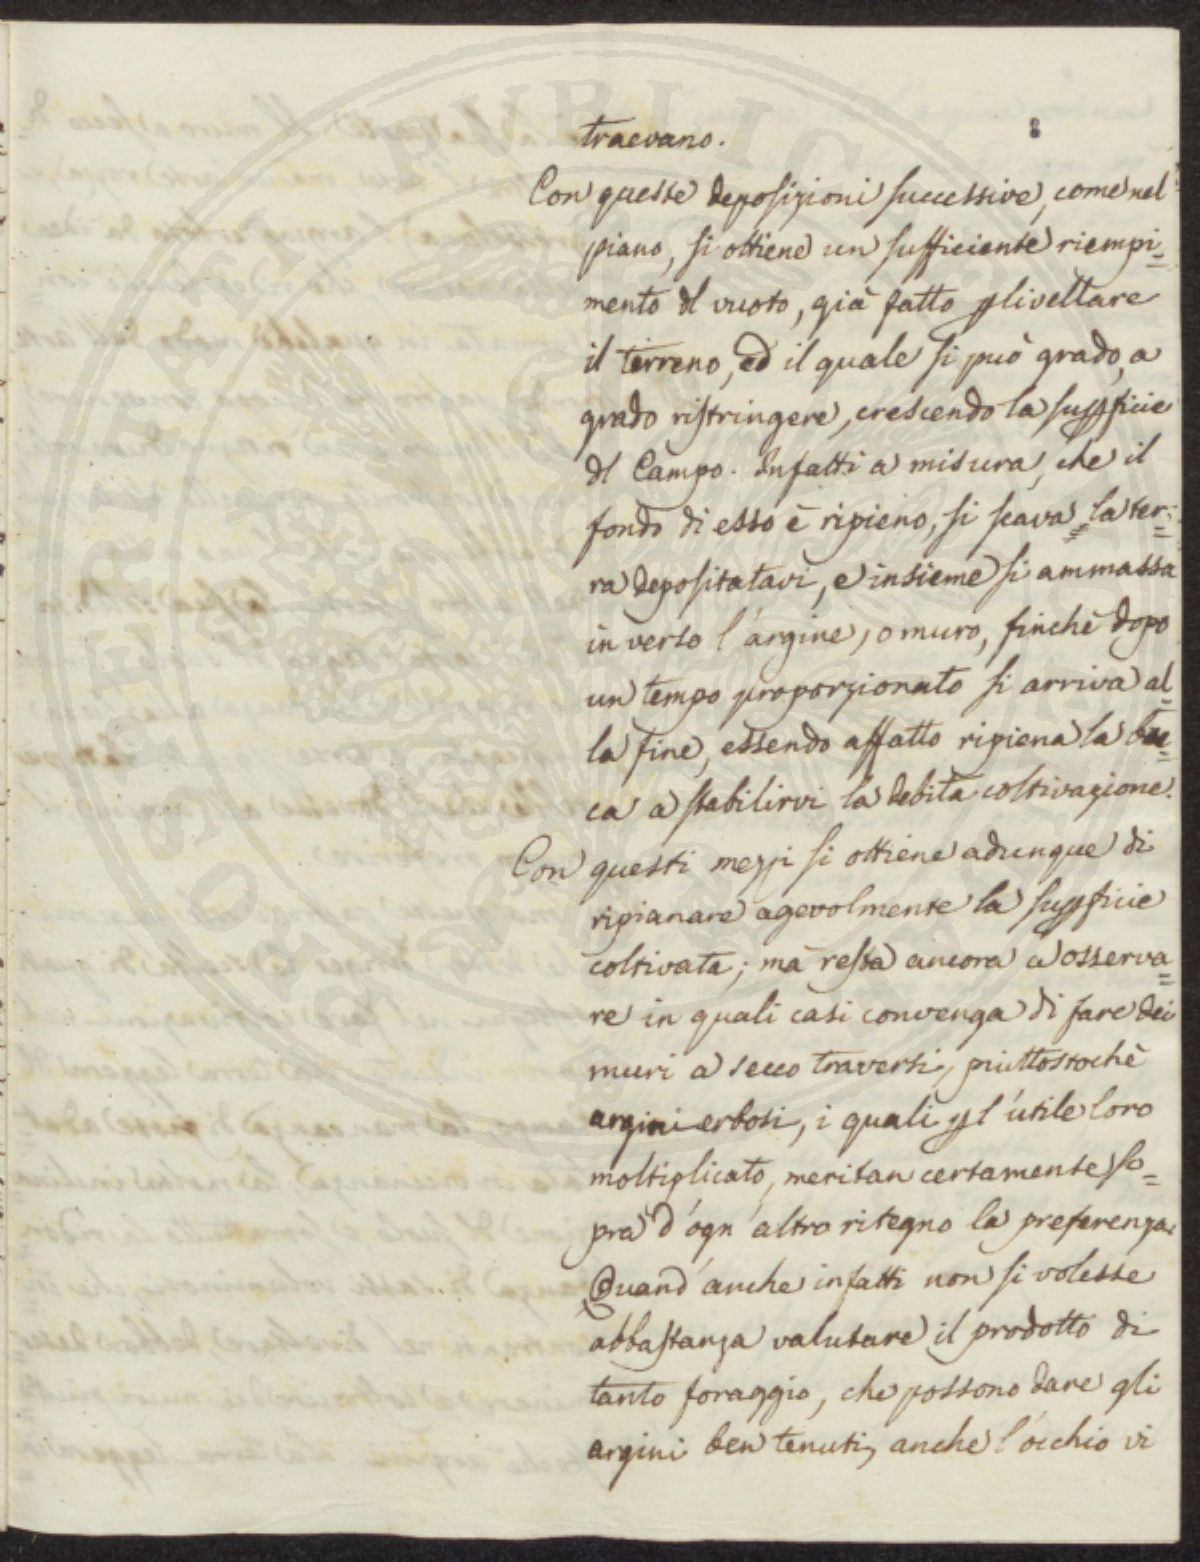 8
traevano.
Con queste deposizioni successive, come nel
piano, si ottiene un sufficiente riempi=
mento dl vuoto, già fatto p livellare
il terreno, ed il quale si può grado, a
grado ristringere, crescendo la suppficie
dl Campo. Infatti a misura, che il
fondo di esso è ripieno, si scava la ter=
ra depositatavi, e insieme si ammassa
in verso l'argine, o muro, finchè dopo
un tempo proporzionato si arriva al=
la fine, essendo affatto ripiena la bu=
ca a stabilirvi la debita coltivazione.
Con questi mezzi si ottiene adunque di
ripianare agevolmente la suppficie
coltivata; mà resta ancora a osserva=
re in quali casi convenga di fare dei
muri a secco traversi, piuttostochè
argini erbosi, i quali p l'utile loro
moltiplicato, meritan certamente so=
pra d'ogn'altro ritegno la preferenza.
Quand'anche infatti non si volesse
abbastanza valutare il prodotto di
tanto foraggio, che possono dare gli
argini ben tenuti, anche l'occhio vi